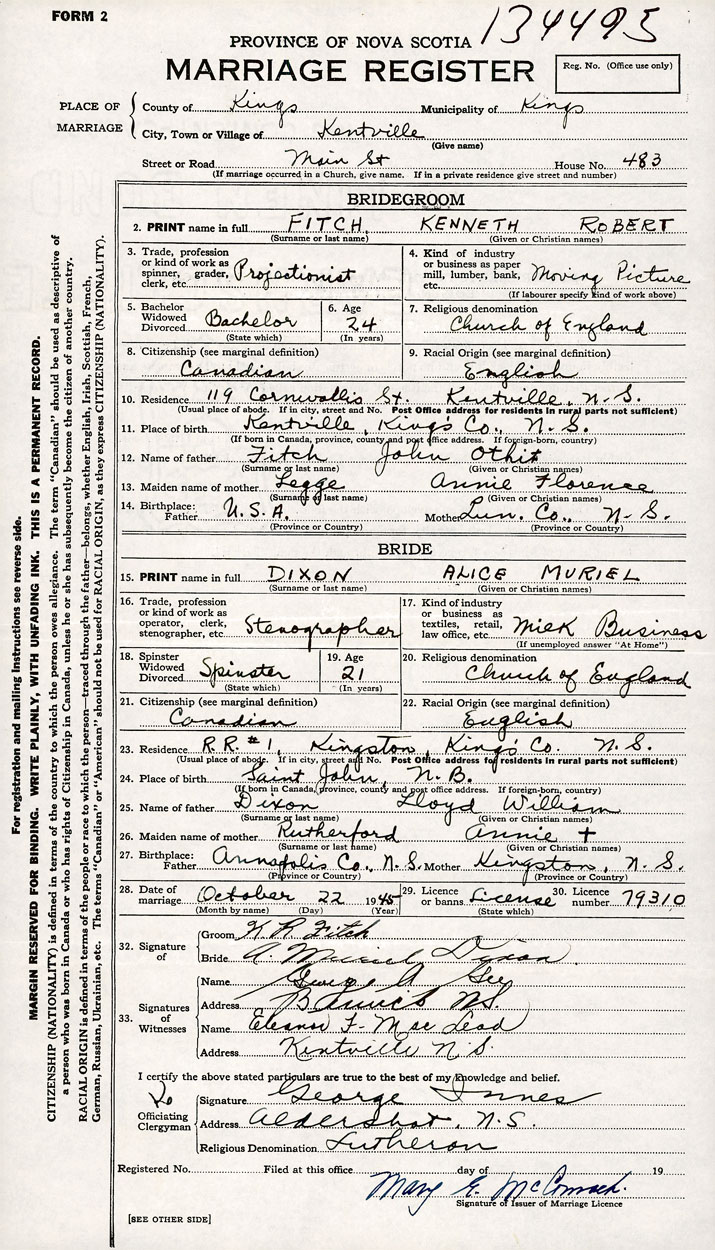 FORM 2
134495
PROVINCE OF NOVA SCOTIA
MARRIAGE REGISTER
Reg. No. (Office use only)
PLACE OF MARRIAGE
County of Kings Municipality of Kings
City, Town or Village of Kentville
(Give name)
Street or Road Main St House No. 483
(If marriage occurred in a Church, give name. If in a private residence give street and number)
BRIDEGROOM
2. PRINT name in full FITCH, KENNETH ROBERT
(Surname or last name) (Given or Christian names)
3. Trade, profession or kind of work as spinner, grader, clerk, etc. Projectionist
4. Kind of industry or business as paper mill, lumber, bank, etc. Moving Picture
(If labourer specify kind of work above)
5. Bachelor Widowed Divorced Bachelor
(State which)
6. Age 24
(In years)
7. Religious denomination
Church of England
8. Citizenship (see marginal definition)
Canadian
9. Racial Origin (see marginal definition)
English
10. Residence 119 Cornwallis St. Kentville, N.S.
(Usual place of abode. If in city, street and No. Post Office address for residents in rural parts not sufficient)
11. Place of birth Kentville, King's Co., N.S.
(If born in Canada, province, county and post office address. If foreign-born, country)
12. Name of father Fitch John
(Surname or last name) (Given or Christian names)
13. Maiden name of mother Legge Annie Florence
(Surname or last name) (Given or Christian names)
14. Birthplace: Father U.S.A. Mother Lun. Co., N-S.
(Province or Country) (Province or Country)
BRIDE
15. PRINT name in full DIXON ALICE MURIEL
(Surname or last name) (Given or Christian names)
16. Trade, profession or kind of work as operator, clerk, stenographer, etc. Stenographer
17. Kind of industry or business as textiles, retail, law office, etc. Milk Business
(If unemployed answer "At Home")
18. Spinster Widowed Divorced Spinster
(State which)
19. Age 21
(In years)
20. Religious denomination
Church of England
21. Citizenship (see marginal definition)
Canadian
22. Racial Origin (see marginal definition)
English
23. Residence R.R. #1, Kingston, King's Co. N.S.
(Usual place of abode. If in city, street and No. Post Office address for residents in rural parts not sufficient)
24. Place of birth Saint John, N.B.
(If born in Canada, province, county and post office address. If foreign-born, country)
25. Name of father Dixon Lloyd William
(Surname or last name) (Given or Christian names)
26. Maiden name of mother Rutherford Annie
(Surname or last name) (Given or Christian names)
27. Birthplace: Father Annapolis Co., N.S. Mother Kingston, N.S.
(Province or Country) (Province or Country)
28. Date of marriage October 22 1945
(Month by name) (Day) (Year)
29. Licence or banns License
(State which)
30. Licence number 79310
32. Signature of
Groom K R Fitch
Bride A. Muriel Dixon.
33. Signatures of Witnesses
Name George A
Address N.S.
Name Eleanor F. MacLeod
Address Kentville N.S.
I certify the above stated particulars are true to the best of my knowledge and belief.
Officiating Clergyman
Signature George Innes
Address Aldershot, N.S.
Religious Denomination Lutheron
Registered No. Filed at this office day of 19
Mary E. McCormack.
Signature of Issuer of Marriage Licence
[SEE OTHER SIDE]
For registration and mailing instructions see reverse side.
MARGIN RESERVED FOR BINDING. WRITE PLAINLY, WITH UNFADING INK. THIS IS A PERMANENT RECORD.
CITIZENSHIP (NATIONALITY) is defined in terms of the country to which the person owes allegiance. The term "Canadian" should be used as descriptive of
a person who was born in Canada or who has rights of Citizenship in Canada, unless he or she has subsequently become the citizen of another country.
RACIAL ORIGIN is defined in terms of the people or race to which the person—traced through the father—belongs, whether English, Irish, Scottish, French,
German, Russian, Ukrainian, etc. The terms "Canadian" or "American" should not be used for RACIAL ORIGIN, as they express CITIZENSHIP (NATIONALITY).